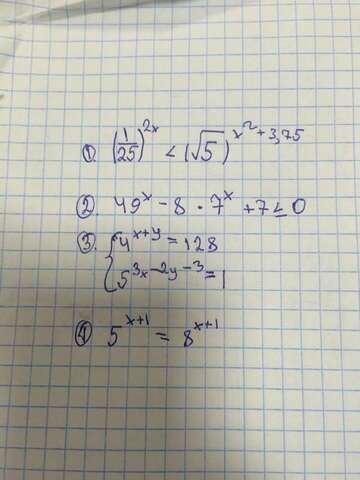 ① (1/25)^2x < (√5)^x²+3,75
② 49^x - 8 · 7^x + 7 ≤ 0
③ { 4^x+y = 128
5^3x-2y-3 = 1
④ 5^x+1 = 8^x+1